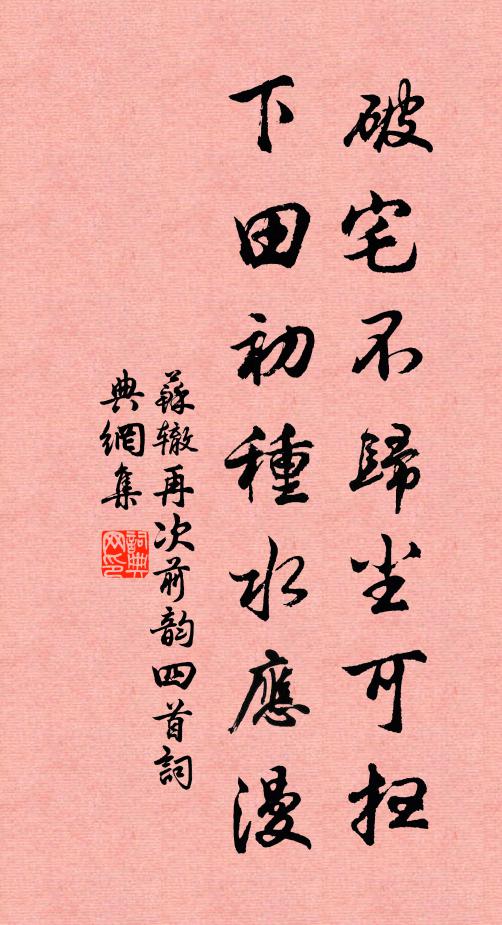 破宅不歸尘可扫
下田初種水應漫
蘇辙再次前韵四首詞
典網集
詞典
网印